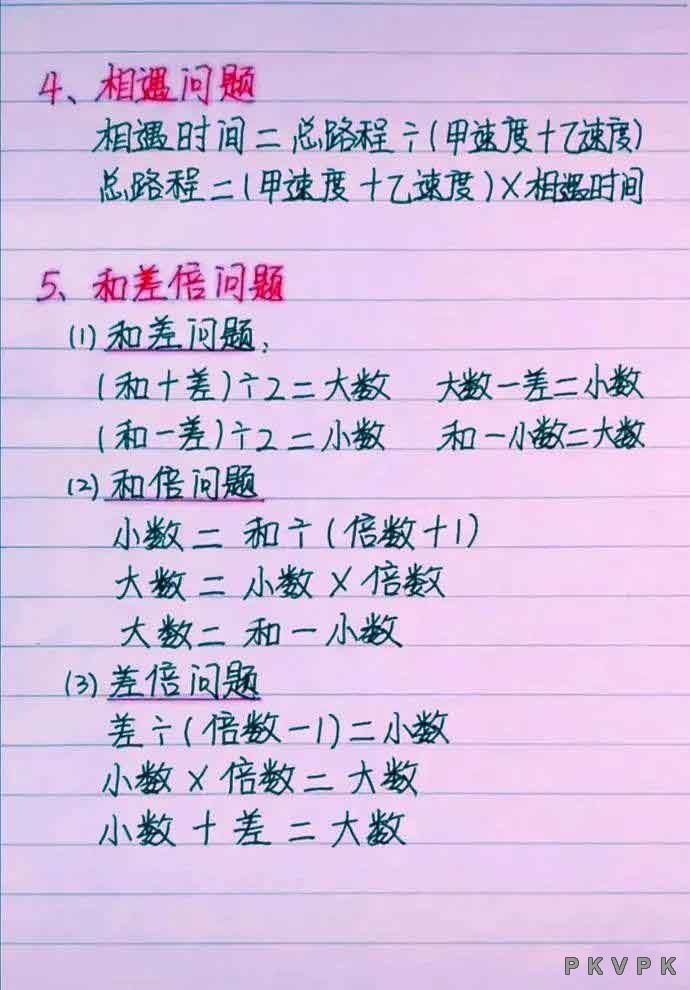 4、相遇问题
相遇时间=总路程÷(甲速度+乙速度)
总路程=(甲速度+乙速度)×相遇时间
5、和差倍问题
(1)和差问题:
(和+差)÷2=大数 大数-差=小数
(和-差)÷2=小数 和-小数=大数
(2)和倍问题
小数=和÷(倍数+1)
大数=小数×倍数
大数=和-小数
(3)差倍问题
差÷(倍数-1)=小数
小数×倍数=大数
小数+差=大数
PKVPK